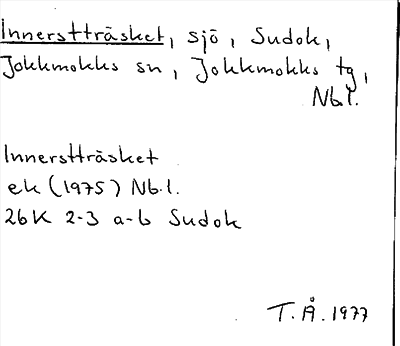 Innerstträsket, sjö, Sudok,
Jokkmokks sn, Jokkmokks tg,
Nb l.
Innerstträsket
ek (1975) Nb.l.
26K 2-3 a-b Sudok
T.Å. 1977